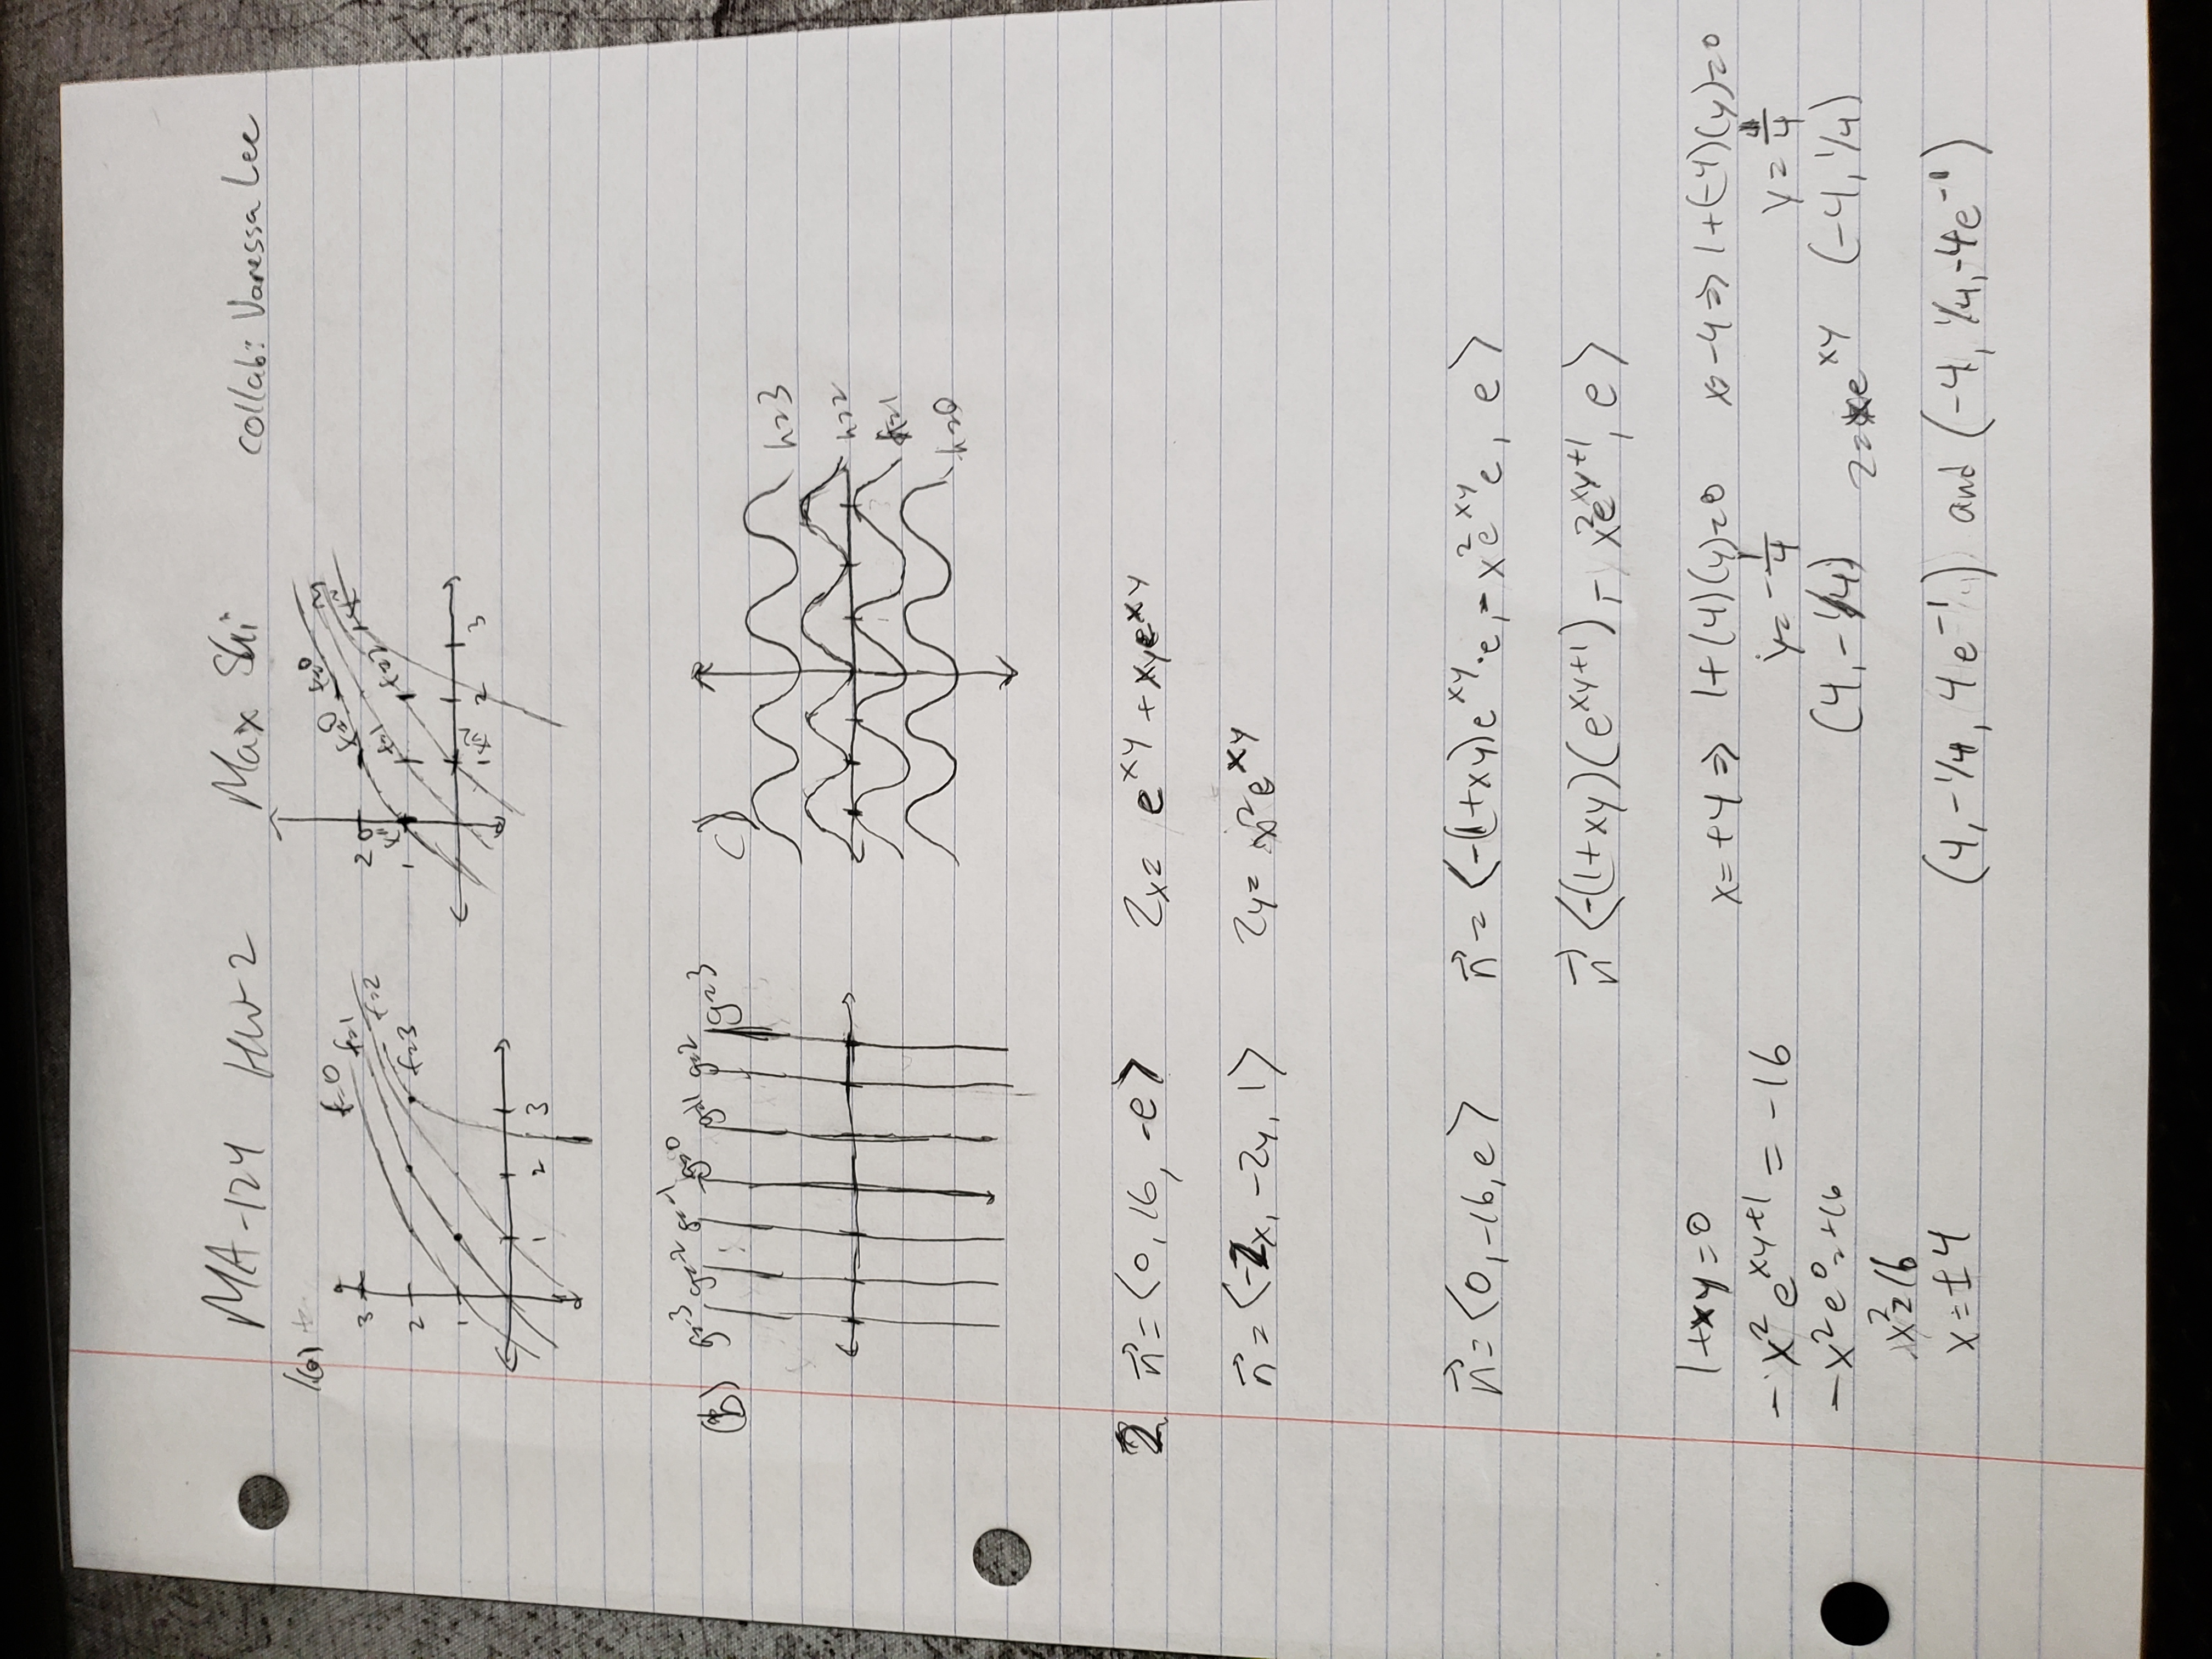 MA-124 HW-2 Max Shi collab: Vanessa Lee
1a)
f=0 f=1 f=2 f=3
3
2
1
1 2 3
f=0 f=0 f=0
f=1 f=2
2
1
1 2 3
(b) g=-3 g=-2 g=-1 g=0 g=1 g=2 g=3
c)
h=3
h=2
h=1
h=0
2 n⃗ = ⟨0, 16, -e⟩ Zx = e^xy + xye^xy
n⃗ = ⟨-2x, -2y, 1⟩ Zy = x²e^xy
n⃗ = ⟨0, -16, e⟩ n⃗ = ⟨-(1+xy)e^xy·e, -x²e^xy e, e⟩
n⃗ ⟨-(1+xy)(e^xy+1), -x²e^xy+1, e⟩
1+xy=0 x=+4 ⇒ 1+(4)(y)=0 x=-4 ⇒ 1+(-4)(y)=0
-x² e^xy+1 = -16 y=-1/4 y=1/4
-x²e⁰=-16 (4, -1/4) z=xe^xy (-4, 1/4)
x²=16
x=±4 (4, -1/4, 4e⁻¹) and (-4, 1/4, -4e⁻¹)